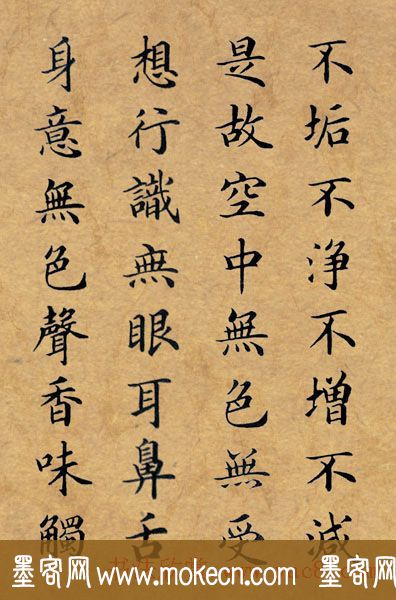 不垢不净不增不減
是故空中無色無受
想行識無眼耳鼻舌
身意無色聲香味觸
墨客网 www.mokecn.com 墨客网